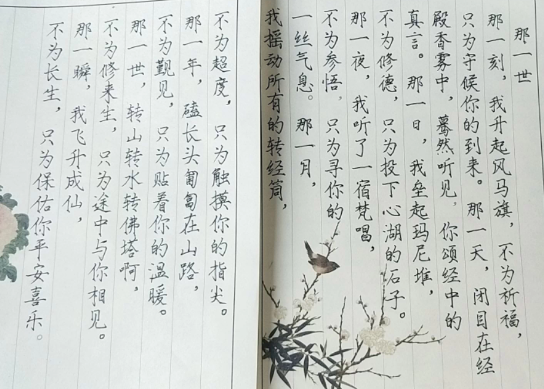 那一世
那一刻，我升起风马旗，不为祈福，
只为守候你的到来。那一天，闭目在经
殿香雾中，蓦然听见，你颂经中的
真言。那一日，我垒起玛尼堆，
不为修德，只为投下心湖的石子。
那一夜，我听了一宿梵唱，
不为参悟，只为寻你的
一丝气息。那一月，
我摇动所有的转经筒，
不为超度，只为触摸你的指尖。
那一年，磕长头匍匐在山路，
不为觐见，只为贴着你的温暖。
那一世，转山转水转佛塔啊，
不为修来生，只为途中与你相见。
那一瞬，我飞升成仙，
不为长生，只为保佑你平安喜乐。